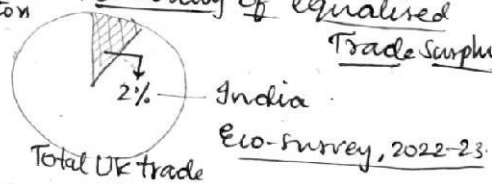 of equalised
Trade Surplu
2% India
Eco-survey, 2022-23.
Total UK trade